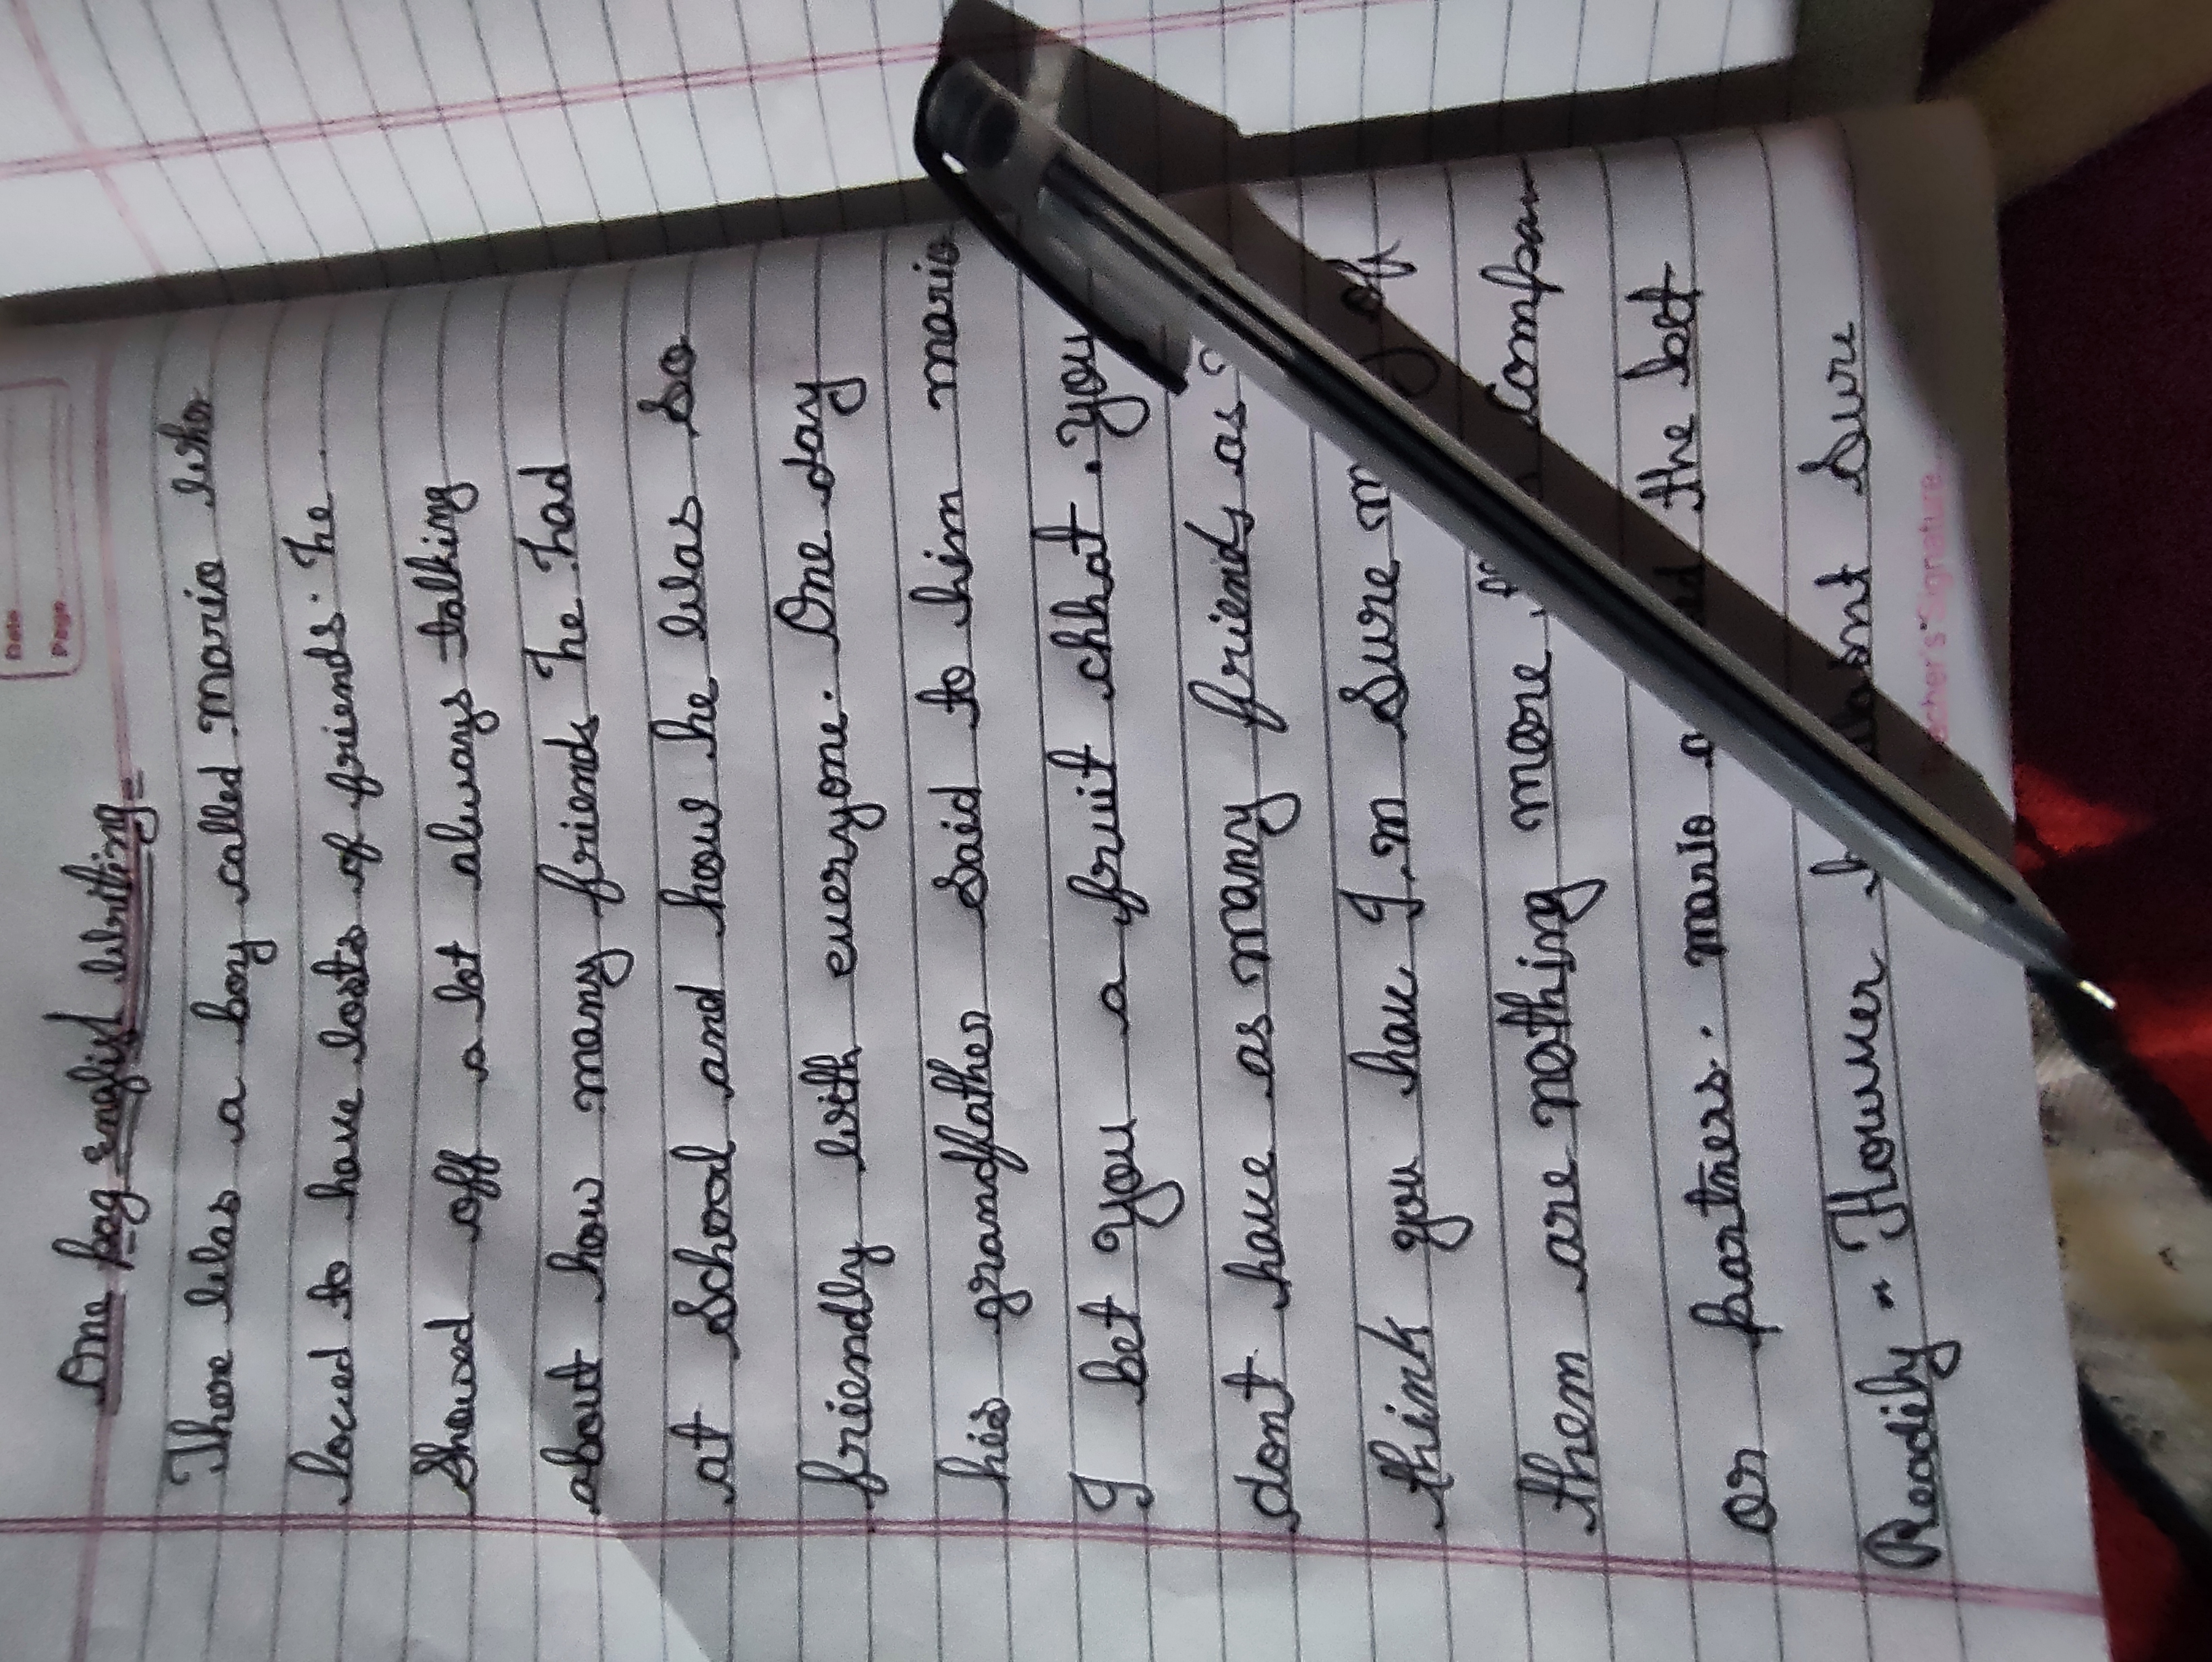 Date
Page
One pag english writing =
There was a boy called mario who
loved to have losts of friends. The
Showed off a lot always talking
about how many friends The had
at School and how he was so
friendly with everyone. One day
his grandfather said to him mario
I bet you a fruit chhat. you
dont have as many friends as
think you have I.m Sure of
them are nothing more
or partners. mario the bet
Readily. Sure
Teacher's Signature